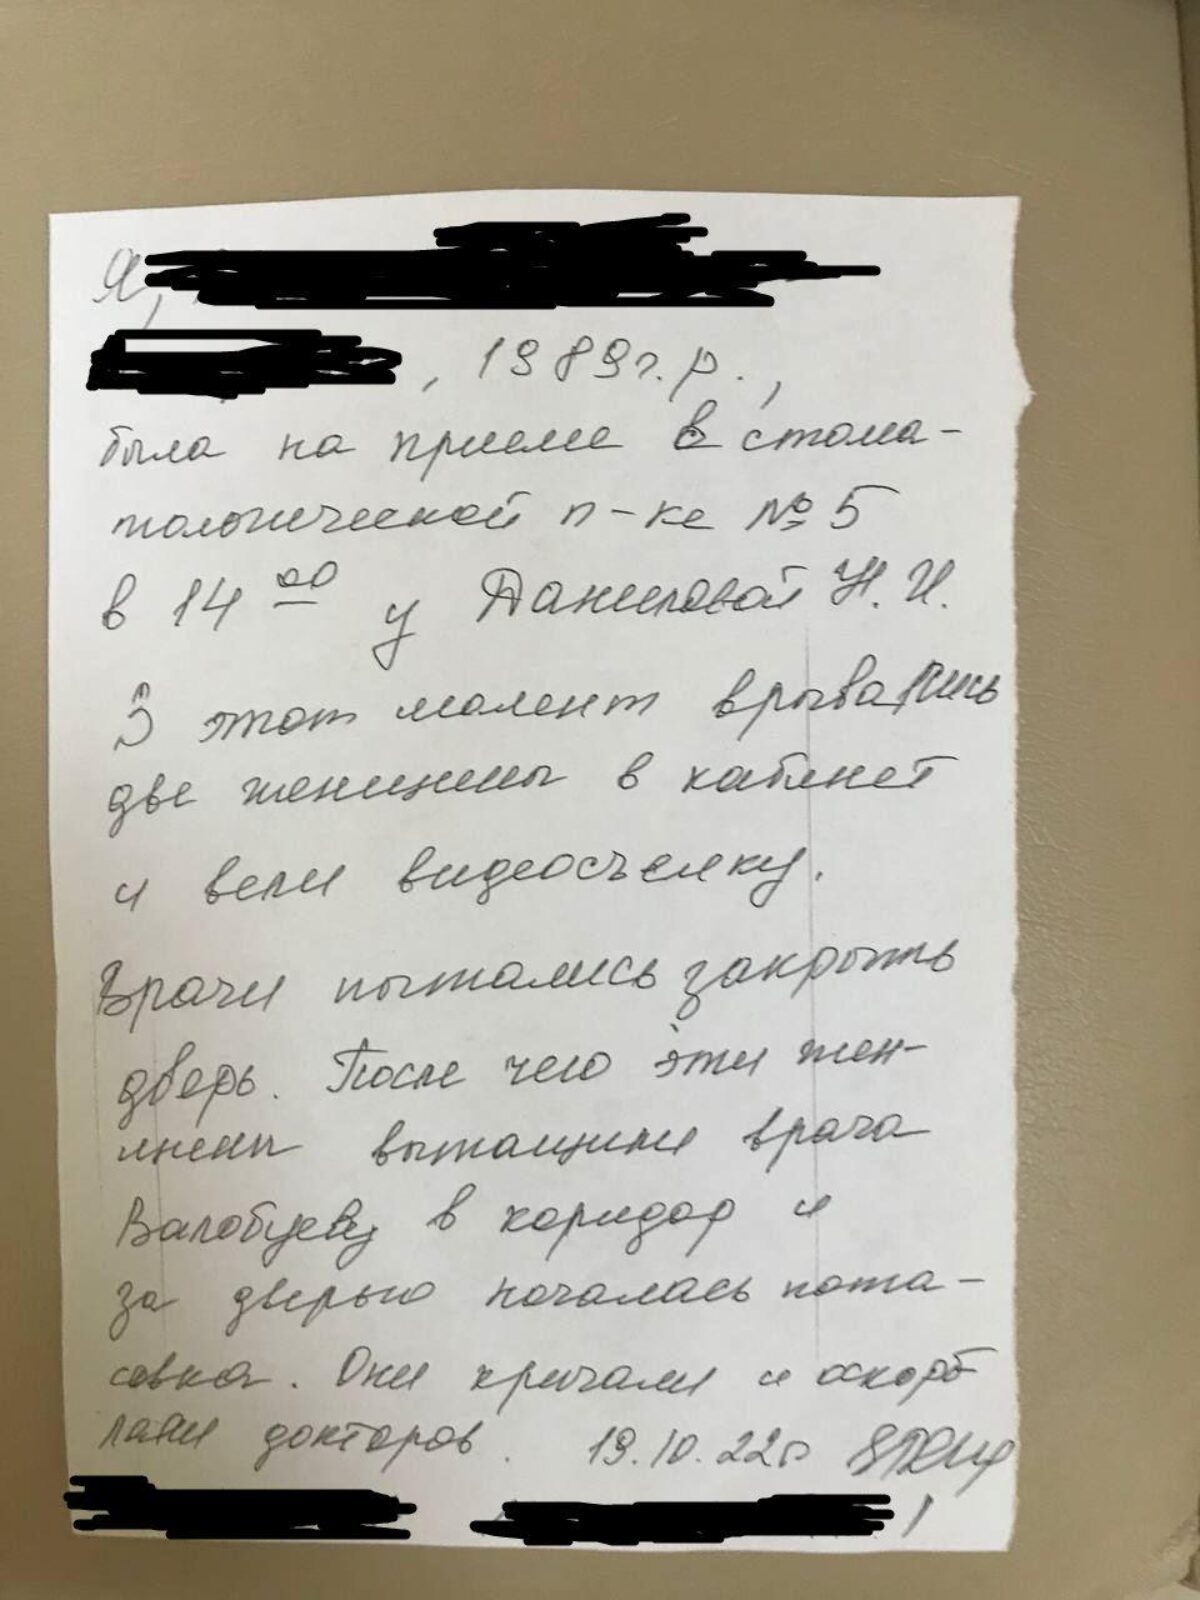 Я,
, 1989г.р.,
была на приеме в стома-
тологической п-ке № 5
в 14 00 у Даниловой Н. И.
В этот момент врывались
две женщины в кабинет
и вели видеосъемку.
Врачи пытались закрыть
дверь. После чего эти жен-
щины вытащили врача
Валобуеву в коридор и
за дверью началась пота-
совка. Они кричали и оскорб
ляли докторов. 19.10.22г